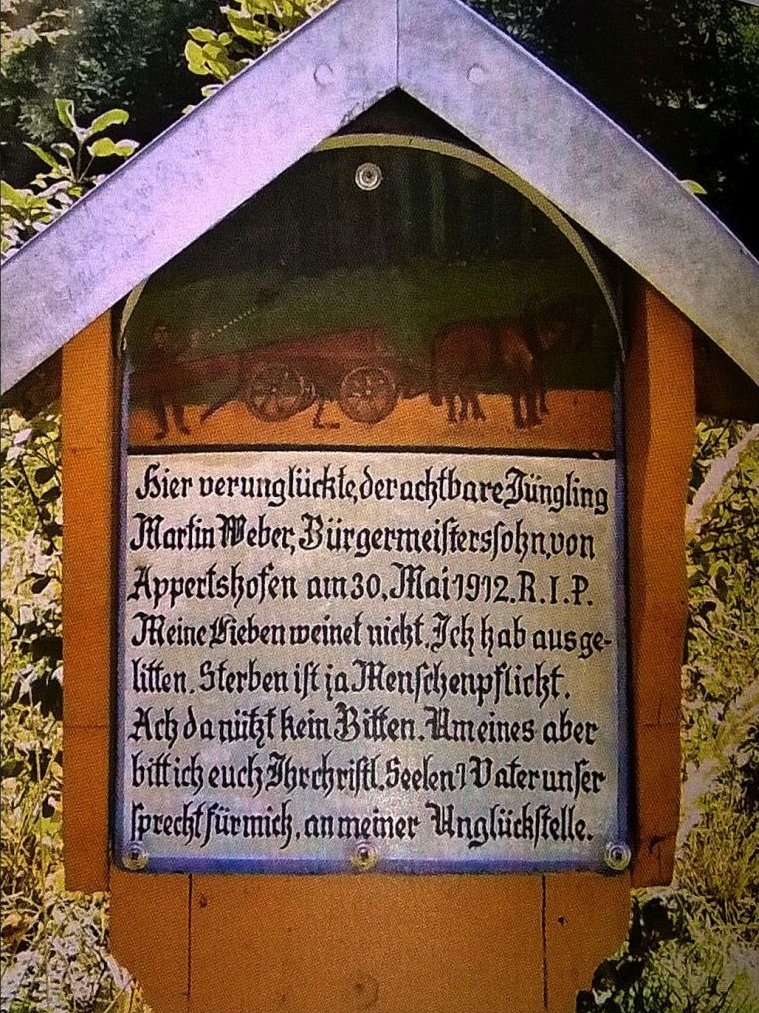 Hier verunglückte, der achtbare Jüngling
Martin Weber, Bürgermeisterssohn, von
Appertshofen am 30. Mai 1912. R.I.P.
Meine Lieben weinet nicht. Ich hab ausge-
litten. Sterben ist ja Menschenpflicht.
Ach da nützt kein Bitten. Um eines aber
bitt ich euch Ihr christl. Seelen 1 Vater unser
sprecht für mich, an meiner Unglückstelle.